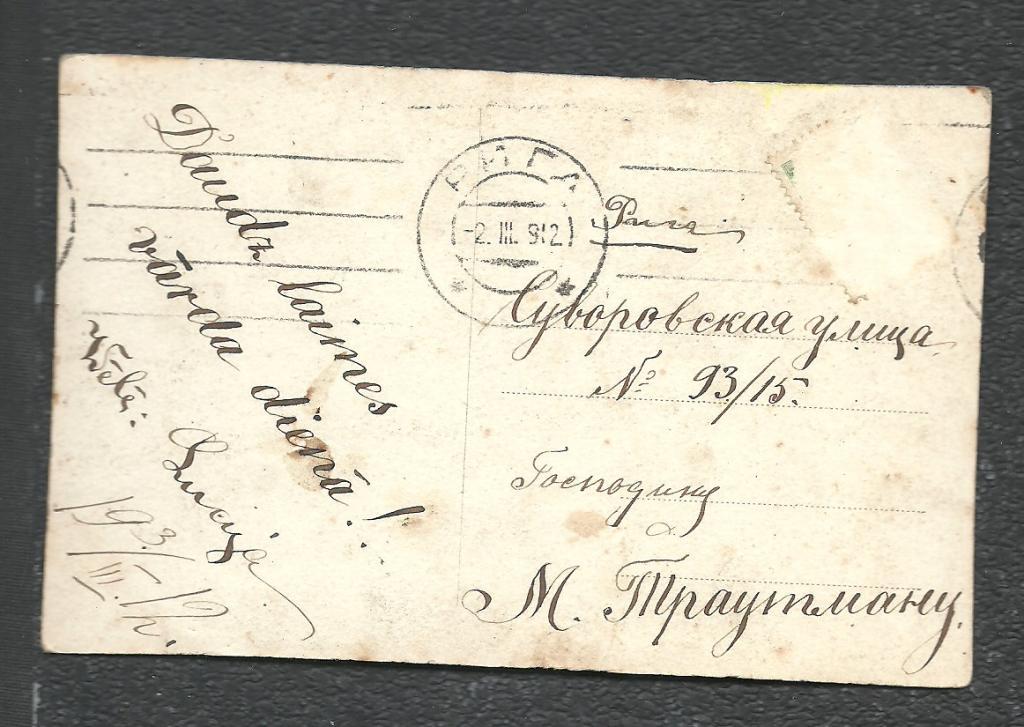 Daudz laimes
vārda dienā!
193/III.12.
РИГА
-2.III.912
Рига
Суворовская улица
№ 93/15.
Господину
М. Траутману.